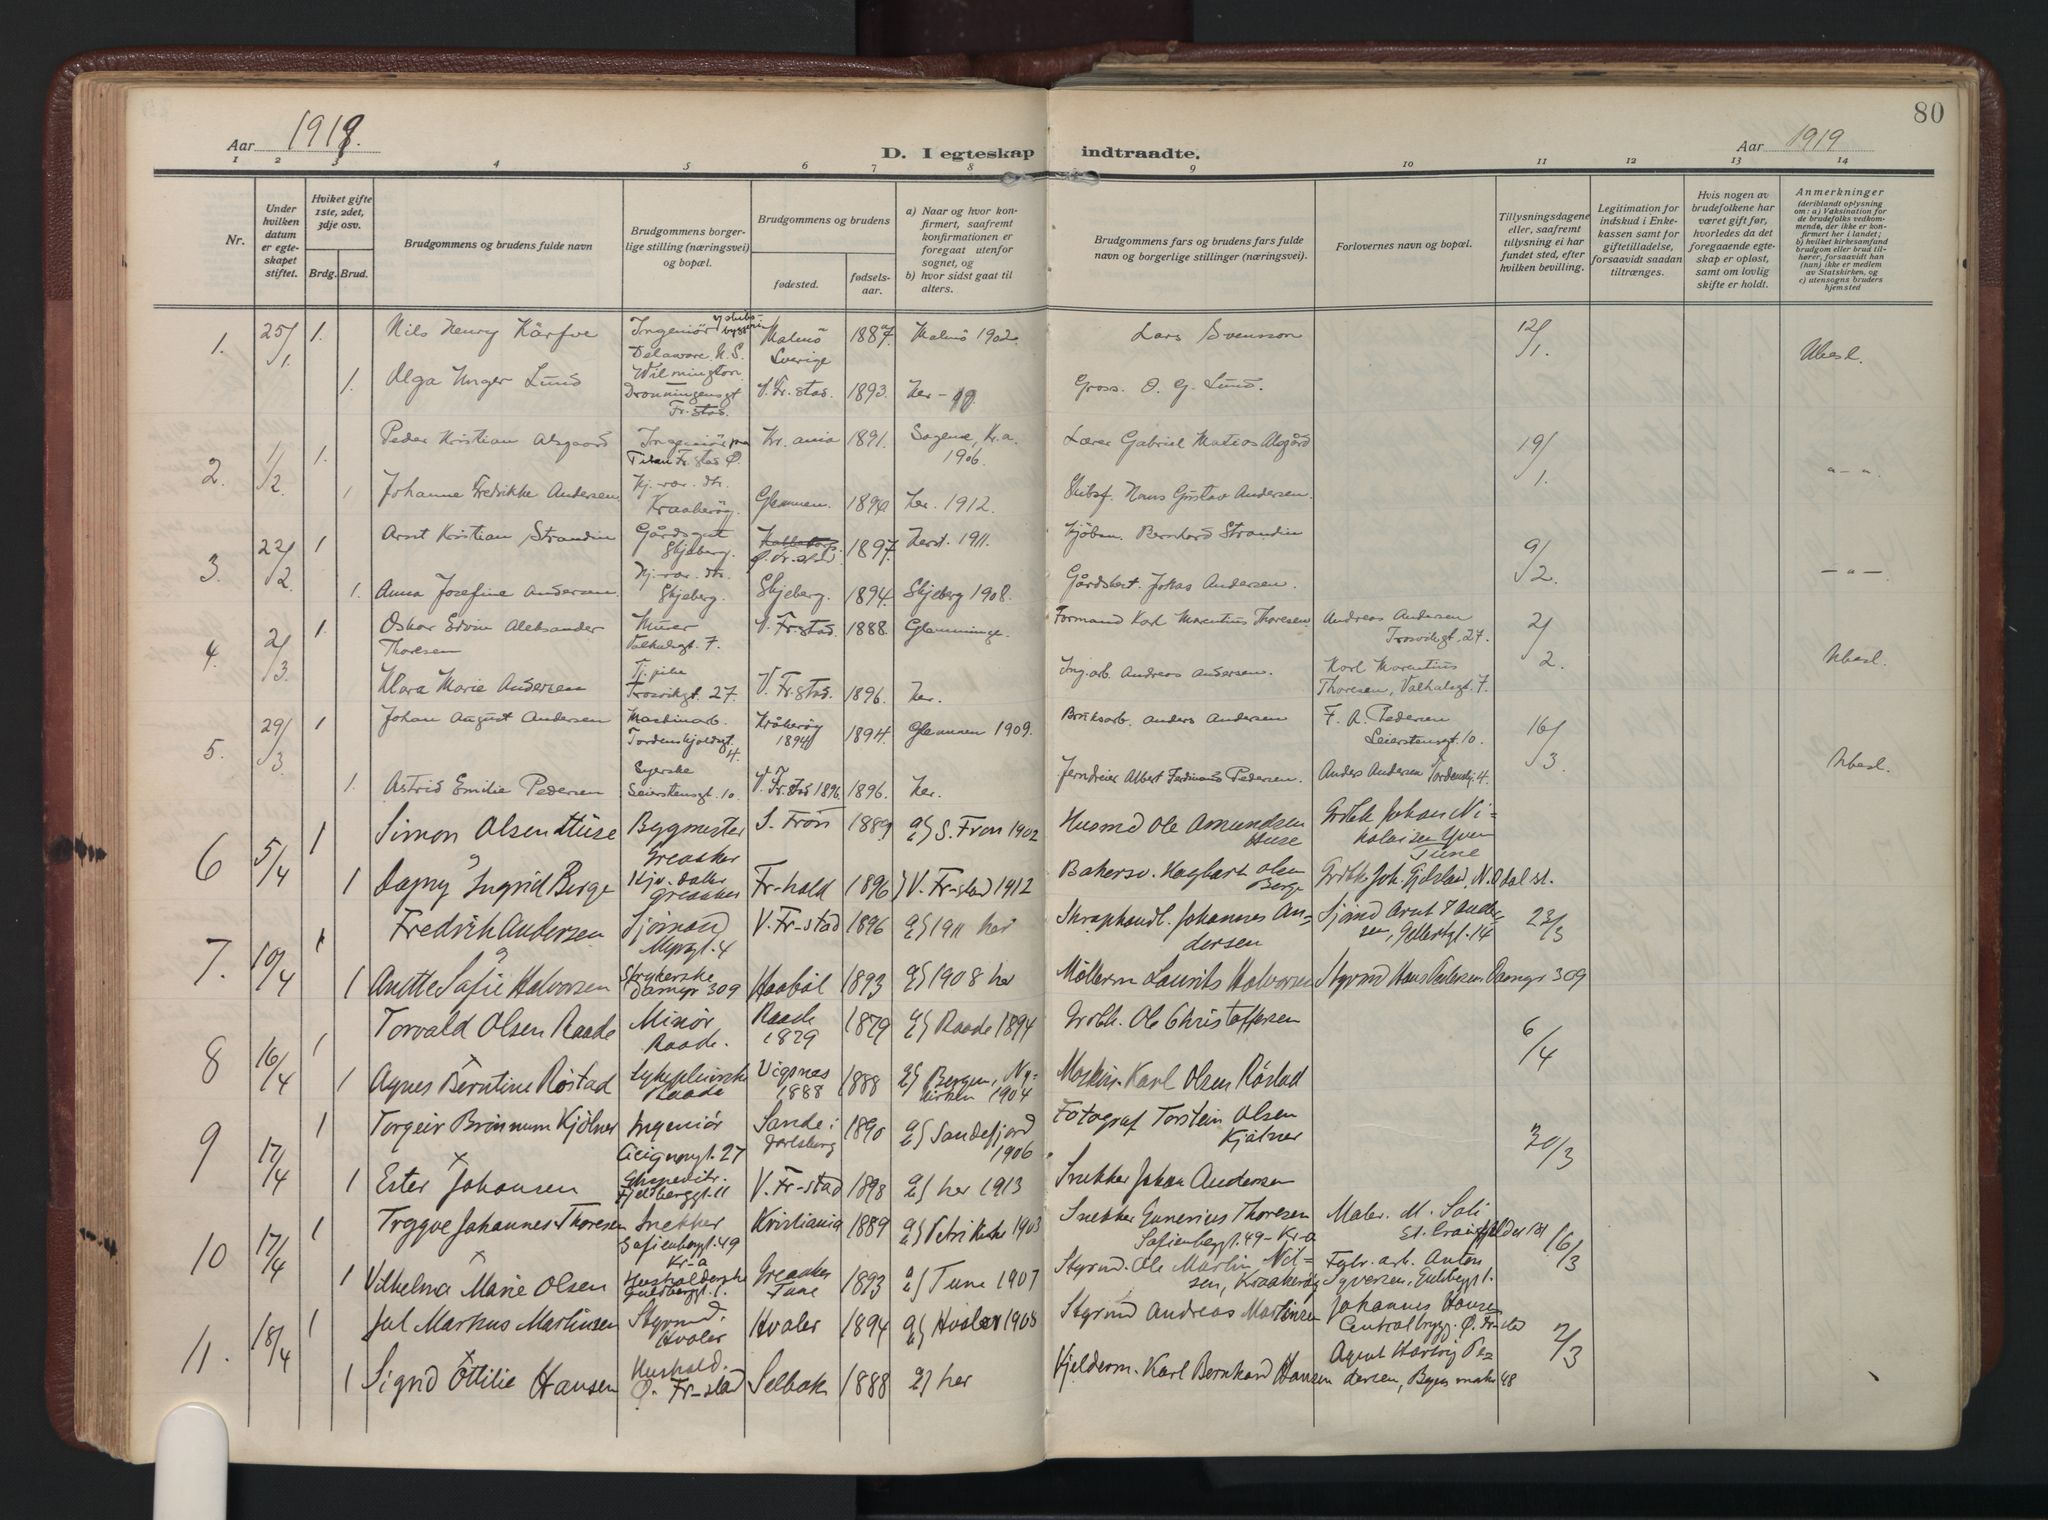 80
Aar 1919.
D. I egteskap indtraadte.
Aar 1919
1 2 3 4 5 6 7 8 9 10 11 12 13 14
Nr.
Under hvilken datum er egteskapet stiftet.
Hviket gifte 1ste, 2det, 3dje osv.
Brdg. Brud.
Brudgommens og brudens fulde navn
Brudgommens borgerlige stilling (næringsvei) og bopæl.
Brudgommens og brudens
fødested.
fødselsaar.
a) Naar og hvor konfirmert, saafremt konfirmationen er foregaat utenfor sognet, og
b) hvor sidst gaat til alters.
Brudgommens fars og brudens fars fulde navn og borgerlige stillinger (næringsvei).
Forlovernes navn og bopæl.
Tillysningsdagene eller, saafremt tillysning ei har fundet sted, efter hvilken bevilling.
Legitimation for indskud i Enkekassen samt for giftetilladelse, forsaavidt saadan tiltrænges.
Hvis nogen av brudefolkene har været gift før, hvorledes da det foregaaende egteskap er opløst, samt om lovlig skifte er holdt.
Anmerkninger
(deriblandt oplysning om: a) Vaksination for de brudefolks vedkommende, der ikke er konfirmert her i landet; b) hvilket kirkesamfund brudgom eller brud tilhører, forsaavidt han (hun) ikke er medlem av Statskirken, og c) utensogns bruders hjemsted
1. 25/1. 1. Nils Henry Kärfve Ingeniör Delaware N.S. Wilmington Malmö Sverige 1887. Malmö 1902. Lars Svensson 12/1. Ubesl.
1. Olga Unger Lund Dronningensgt Fr.stad. V. Fr.stad. 1893. her - Gross. O. G. Lund.
2. 1/2. 1. Peder Kristian Alsgaard Ingeniör Titan Fr.stad Ø. Kr.ania 1891. Sagene, Kr.a. 1906. Lærer Gabriel Alsgård 19/1. - " -
1 Johanne Fredrikke Andersen. Hj.vær. dtr. Kraakerøy. Glemmen. her. 1912. Skibsf. Hans Gustav Andersen.
3. 22/2 1 Arnt Kristian Strandin Skjeberg. 1897. Herst. 1911. Kjøbm. Bernhard Strandin 9/2. - " -
1. Anna Josefine Andersen Hj.vær. dtr. Skjeberg. Skjeberg. 1894. Skjeberg 1908. Johas Andersen.
4. 2/3. 1. Oskar Edvin Aleksander Thoresen Murer Valhalsgt. 7. V. Fr.stad. 1888. Glemminge. Formand Karl Marentius Thoresen Andreas Andersen Trosvikgt. 27. 2/2. Ubesl.
Klara Marie Andersen Tj.pike Trosvikgt. 27. V. Fr.stad. 1896. her. Ing.arb. Andreas Andersen. Karl Marentius Thoresen, Valhalsgt. 7.
5. 29/3. 1 Johan August Andersen Maskinarb. Tordenskjoldsgt. 4. Kråkerøy 1894 1894. Glemmen 1909. Bruksarb. Anders Andersen F. A. Pedersen Leierstensgt. 10. 16/3 Ubesl.
1. Astrid Emilie Pedersen Syerske Seierstensgt. 10. V. Fr.stad 1896 1896. her. Jerndreier Albert Ferdinand Pedersen. Anders Andersen Tordenskj. 4.
6 5/4 1 Simon Olsen Huse Bygmester Greaaker S. Fron 1889 S. Fron 1902 Husmd Ole Amundsen Huse Grdbk Johan Nikolaisen Yven Tune
1 Dagny Ingrid Berge Hjv. datter Greaaker Fr-hald 1896 V. Fr-stad 1912 Bakersv. Hagbart Olsen Berge
7. 10/4 1 Fredrik Andersen Sjömand Myrgt. 4 V. Fr-stad 1896 1911 her Skraphandl. Johannes Andersen Sjömd Arnt J Andersen, Gellertgt. 14 23/3
1 Anette Sofie Halvorsen Strykerske Damyr 309 Haaböl 1893 1908 her Möllerm Laurits Halvorsen Styrmd Hans Andersen Damyr 309
8 16/4 1 Torvald Olsen Raade Minör Raade. Raade 1879 1879 Raade 1894 Grdbk. Ole Christoffersen 6/4
1 Agnes Berntine Röstad Sykepleierske Raade Vigsnes 1888 1888 Bergen, Nykirken 1904 Maskin. Karl Olsen Röstad
9 17/4 1 Torgeir Brönnum Kjölner Ingeniör 27 Sande i Jarlsberg 1890 Sandefjord 1906 Fotograf Torstein Olsen Kjölner 30/3
1 Ester Johansen Fjeldberggt. 11 V. Fr-stad 1898 her 1913 Snekker Johan Andersen
10 17/4 1 Trygve Johannes Thoresen Snekker Sofienbergt. 49 Kr-a Kristiania 1889 Petri Kirke 1903 Snekker Thoresen Sofienbergt. 49 - Kr-a Maler. M. Sali 16/3
1 Vilhelma Marie Olsen Husholderske Greaaker Tune 1893 Tune 1907 Styrmd. Ole Martin Nilsen, Kraakeröy Fabr. arb. Anton Syversen,
11. 18/4 1 Jul Markus Martinsen Styrmd. Hvaler Hvaler 1894 Hvaler 1908 Styrmd Andreas Martinsen Johannes Hansen Centralbrygg. Ø. Fr-stad 2/3
1 Sigrid Ottilie Hansen Hushold. Ø. Fr-stad Selbak 1888 her Kjelderm. Karl Bernhard Hansen Agent Hartvig Pedersen,